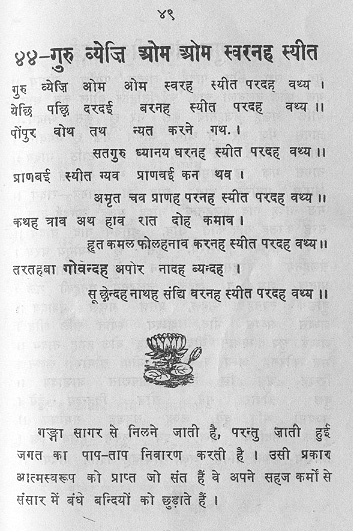 ४९
४४-गुरु व्येज़ि ओम ओम स्वरनह स्यीत
गुरु व्येज़ि ओम ओम स्वरह स्यीत परदह वथ्य ।
येछि पछि दरदई बरनह स्यीत परदह वथ्य ॥
पोंपुर बोथ तथ न्यत करने गथ. ।
सतगुरु ध्यानय धरनह स्यीत परदह वथ्य ॥
प्राणबई स्यीत ग्यव प्राणबई कन थव ।
अमृत चव प्राणह परनह स्यीत परदह वथ्य ॥
कथह त्राव अथ हाव रात दोह कमाव ।
हृत कमल फोलहनाव करनह स्यीत परदह वथ्य॥
तरतहबा गोवन्दह अपोर नादह ब्यन्दह ।
सू छेन्दह नाथह संद्यि बरनह स्यीत परदह वथ्य॥
गङ्गा सागर से निलने जाती है, परन्तु ज़ाती हुई
जगत का पाप-ताप निवारण करती है । उसी प्रकार
आत्मस्वरूप को प्राप्त जो संत हैं वे अपने सहज कर्मों से
संसार में बंधे बन्दियों को छुड़ाते हैं ।